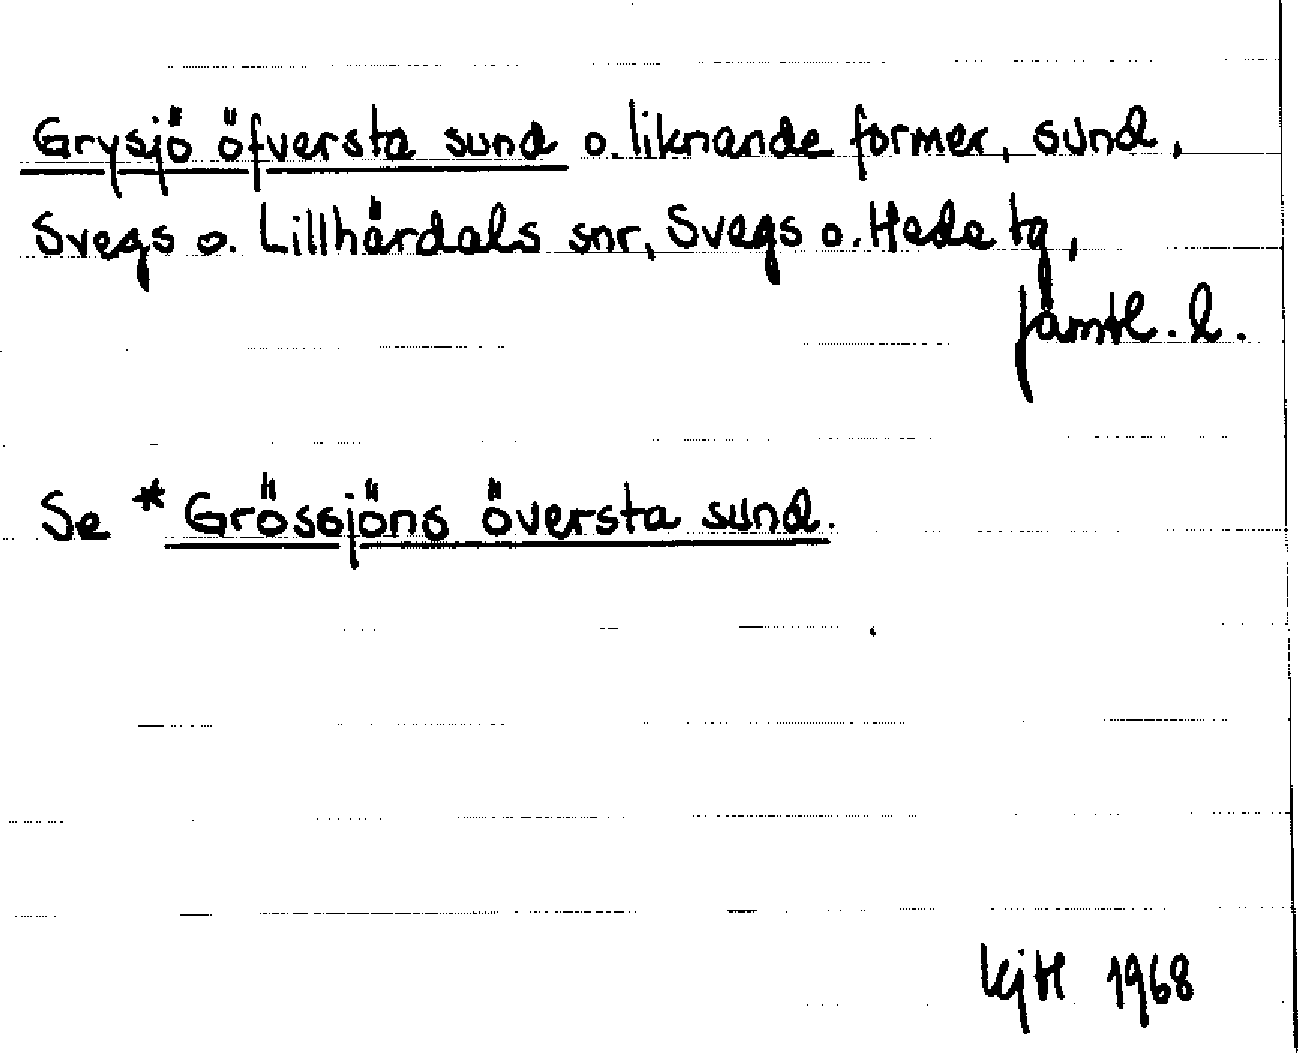 Grysjö öfversta sund o. liknande former, sund,
Svegs o. Lillhärdals snr, Svegs o. Hede tg,
Jämtl. l.
Se *Grössjöns översta sund.
1968